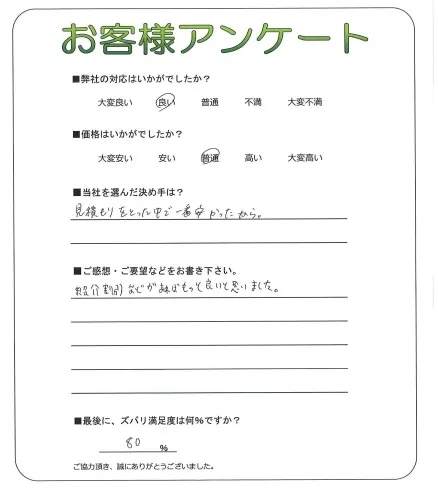 お客様アンケート
■弊社の対応はいかがでしたか？
大変良い 良い 普通 不満 大変不満
■価格はいかがでしたか？
大変安い 安い 普通 高い 大変高い
■当社を選んだ決め手は？
見積もりをとった中で一番安かったから。
■ご感想・ご要望などをお書き下さい。
紹介割引などがあればもっと良いと思いました。
■最後に、ズバリ満足度は何％ですか？
80 %
ご協力頂き、誠にありがとうございました。